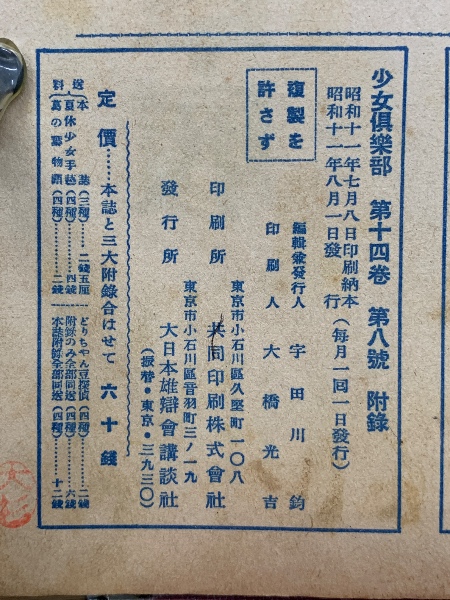 少女俱樂部 第十四卷 第八號 附錄
昭和十一年七月八日印刷納本
昭和十一年八月一日發行
(每月一回一日發行)
複製を
許さず
編輯兼發行人 宇田川 鈞
印刷人 大橋光吉
東京市小石川區久堅町一〇八
印刷所 共同印刷株式會社
東京市小石川區音羽町三ノ一九
發行所 大日本雄辯會講談社
(振替・東京・三九三〇)
定價……本誌と三大附錄合はせて 六十錢
送料
本誌(三種)……二錢五厘
夏休少女手藝(四種)……四錢
(四種)……二錢
どりちやん豆探偵(四種)……二錢
附錄のみ全部同送(四種)……六錢
本誌附錄全部同送(四種)……十二錢